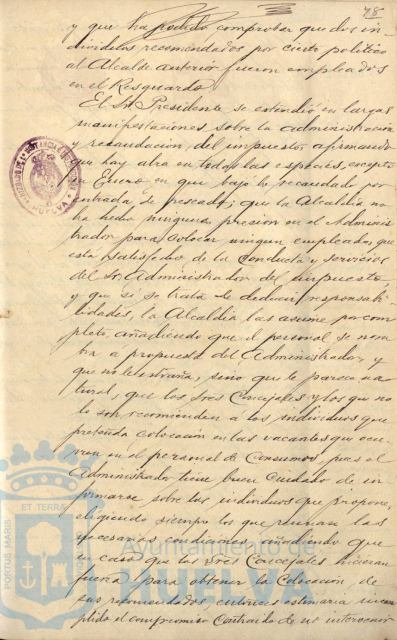 78
y que ha podido comprobar que dos in-
dividuos recomendados por cierto político
al Alcalde anterior fueron empleados
en el Resguardo.
El Sr. Presidente se extendió en largas
manifestaciones sobre la administración
y recaudación del impuesto, afirmando
que hay alza en todas las especies, excepto
Enero en que bajó lo recaudado por
entrada de pescado; que la Alcaldía no
ha hecho ninguna presión en el Adminis-
trador para colocar ningun empleado, que
está satisfecho de la conducta y servicios
del Sr. Administrador del impuesto,
y que si se trata de deducir responsabi-
lidades, la Alcaldía las asume por com-
pleto, añadiendo que el personal se nom-
bra a propuesta del Administrador, y
que no le extraña, sino que le parece na-
tural, que los Sres Concejales y los que no
lo son recomienden a los individuos que
pretenda colocacion en las vacantes que ocu-
rren en el personal de Consumos, pues el
Administrador tiene buen cuidado de in-
formarse sobre los individuos que propone,
eligiendo siempre los que reunan las
necesarias condiciones, añadiendo que
en caso que los Sres Concejales hicieran
fuerza para obtener la colocación de
sus recomendados, entonces estimaria incum-
plido el compromiso contraido de no intervenir
HUELVA
PORTUS MARIS
ET TERRAE
Ayuntamiento de
HUELVA